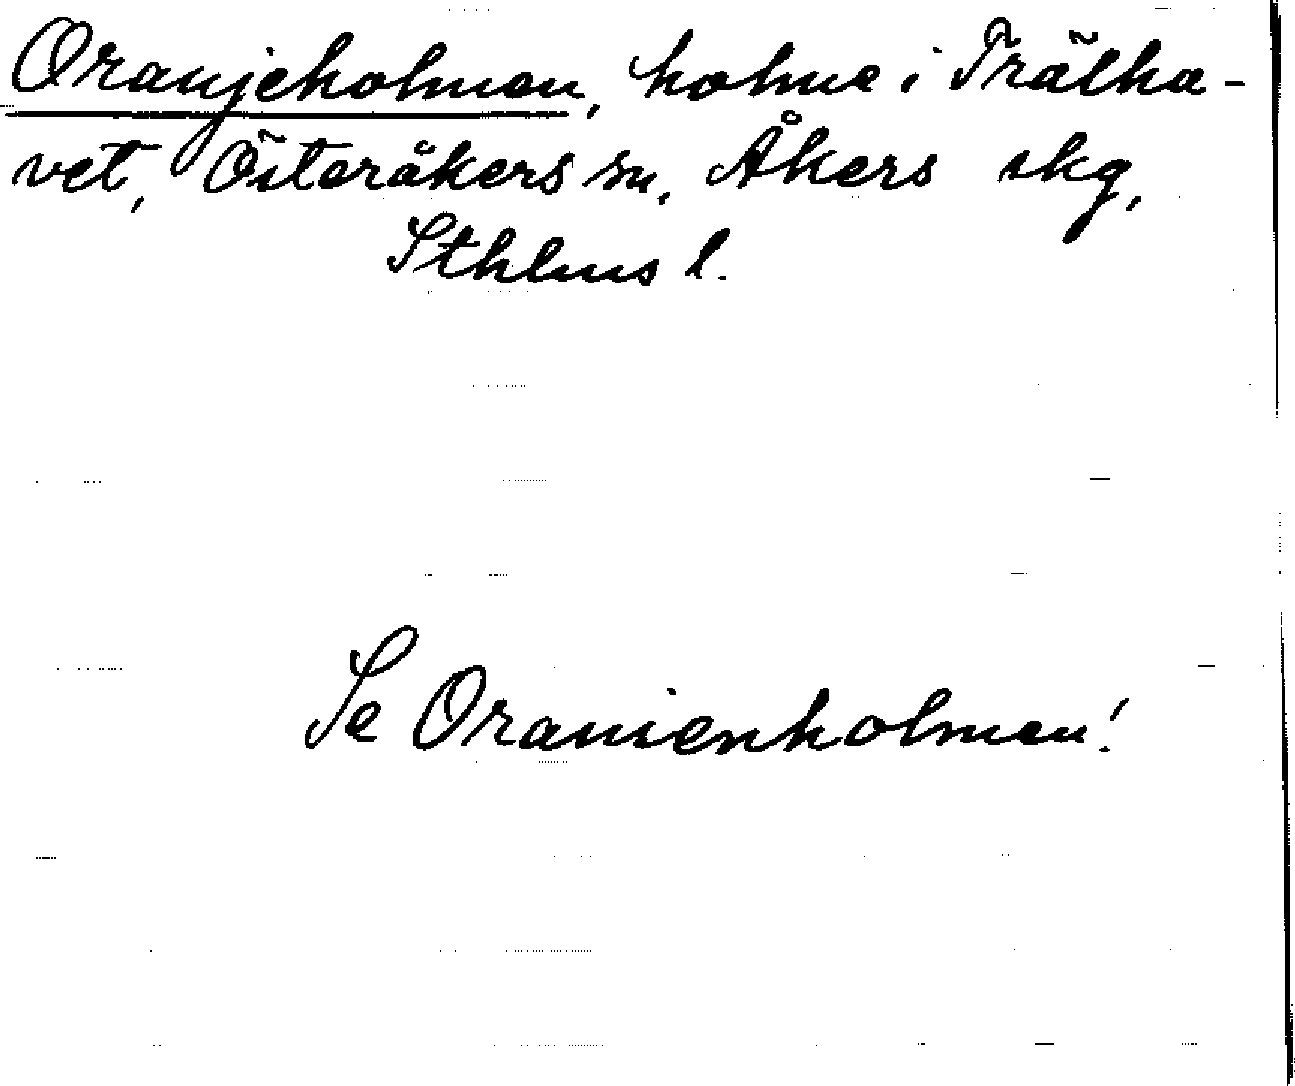 Oranjeholmen, holme i Trälha-
vet, Österåkers sn, Åkers skg,
Sthlms l.
Se Oranienholmen!